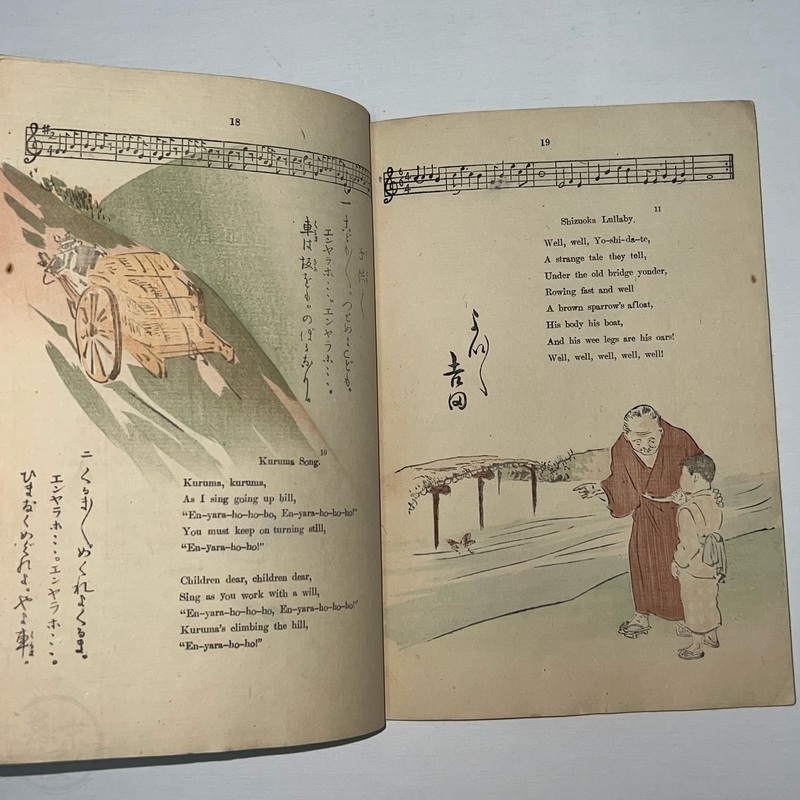 18
子供〱
一 こども〱、つとめよこども。
エンヤラホ……。エンヤラホ……。
車は坂をものぼるなり。
10
Kuruma Song.
Kuruma, kuruma,
As I sing going up hill,
"En-yara-ho-ho-ho, En-yara-ho-ho-ho!"
You must keep on turning still,
"En-yara-ho-ho!"
Children dear, children dear,
Sing as you work with a will,
"En-yara-ho-ho-ho, En-yara-ho-ho-ho!"
Kuruma's climbing the hill,
"En-yara-ho-ho!"
二 くるま〱めぐれよくるま。
エンヤラホ……。エンヤラホ……。
ひまなくめぐれよ。やよ車。
19
11
Shizuoka Lullaby.
Well, well, Yo-shi-da-te,
A strange tale they tell,
Under the old bridge yonder,
Rowing fast and well
A brown sparrow's afloat,
His body his boat,
And his wee legs are his oars!
Well, well, well, well, well!
吉田